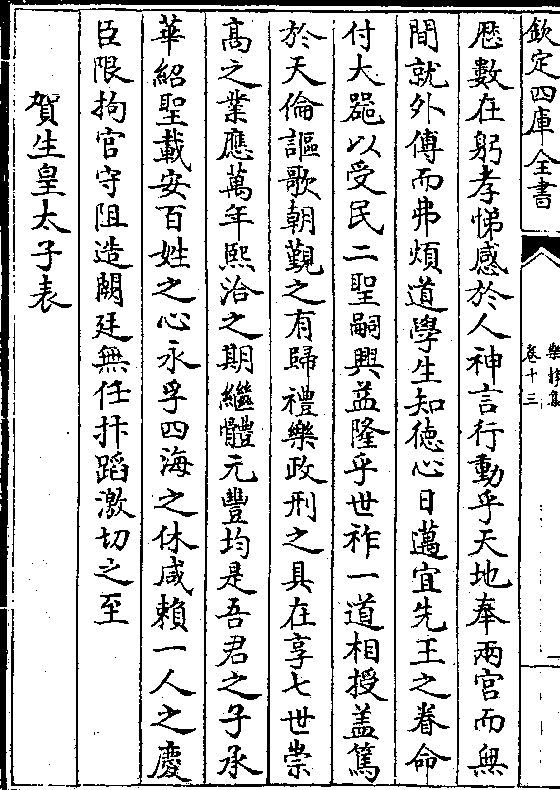 欽定四庫全書
卷十三
厯數在躬孝悌感於人神言行動乎天地奉兩宮而無
間就外傅而弗煩道學生知德心日邁宜先王之眷命
付大噐以受民二聖嗣興益隆乎世祚一道相授盖篤
於天倫謳歌朝覲之有歸禮樂政刑之具在享七世崇
髙之業應萬年熙洽之期繼體元豐均是吾君之子承
華紹聖載安百姓之心永孚四海之休咸賴一人之慶
臣限拘官守阻造闕廷無任抃蹈激切之至
賀生皇太子表